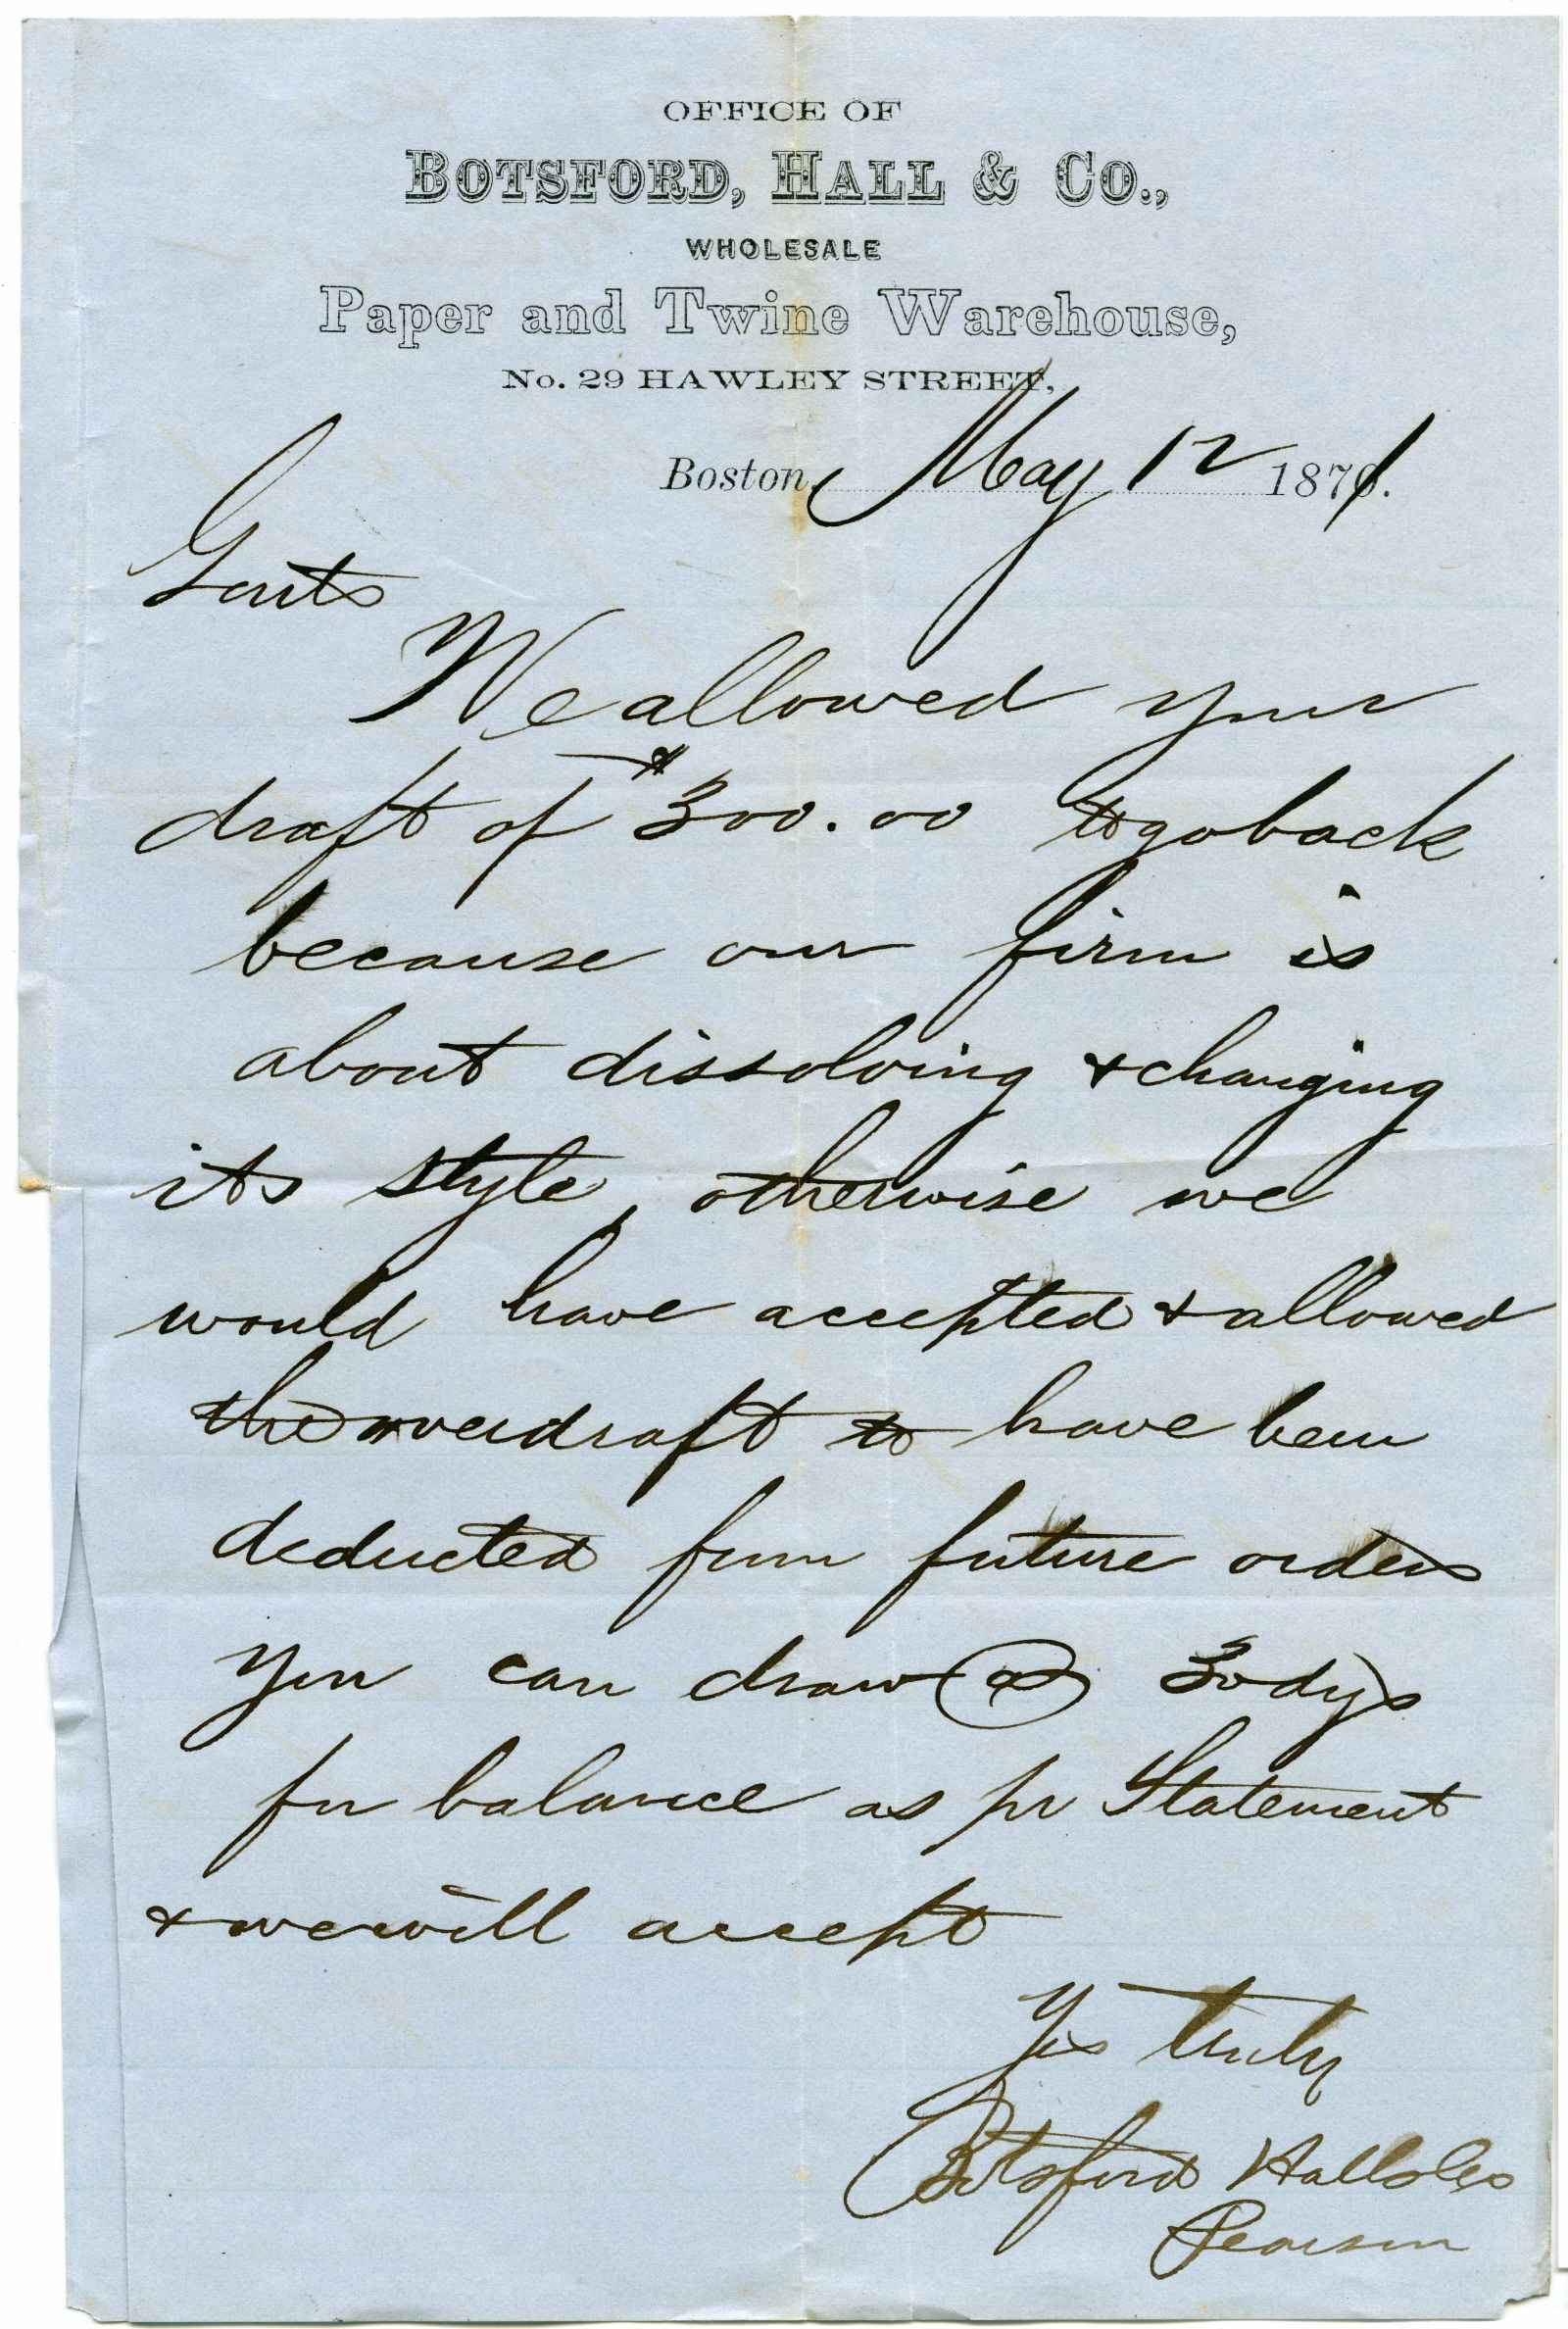 OFFICE OF
BOTSFORD, HALL & CO.,
WHOLESALE
Paper and Twine Warehouse,
No. 29 HAWLEY STREET,
Boston, May 12 1871.
Gents
We allowed your
draft of $300.00 to go back
because our firm is
about dissolving & changing
its style, otherwise we
would have accepted & allowed
the overdraft to have been
deducted from future orders
You can draw @ 30 dys
for balance as pr Statement
& we will accept
Yrs truly
Botsford Hall & Co
Pearson